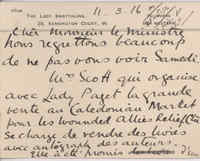 FROM
THE LADY BRETTAULING,
29, KENSINGTON COURT, W.
11. 3. 16
Cher Monsieur le ministre
nous regrettons beaucoup
de ne pas vous voir Samedi.
Mrs Scott qui organise
avec Lady Paget la grande
vente au Caledonian Market
pour les Wounded Allies Relief
se charge de vendre des livres
avec autograph des auteurs.
Elle a été promis